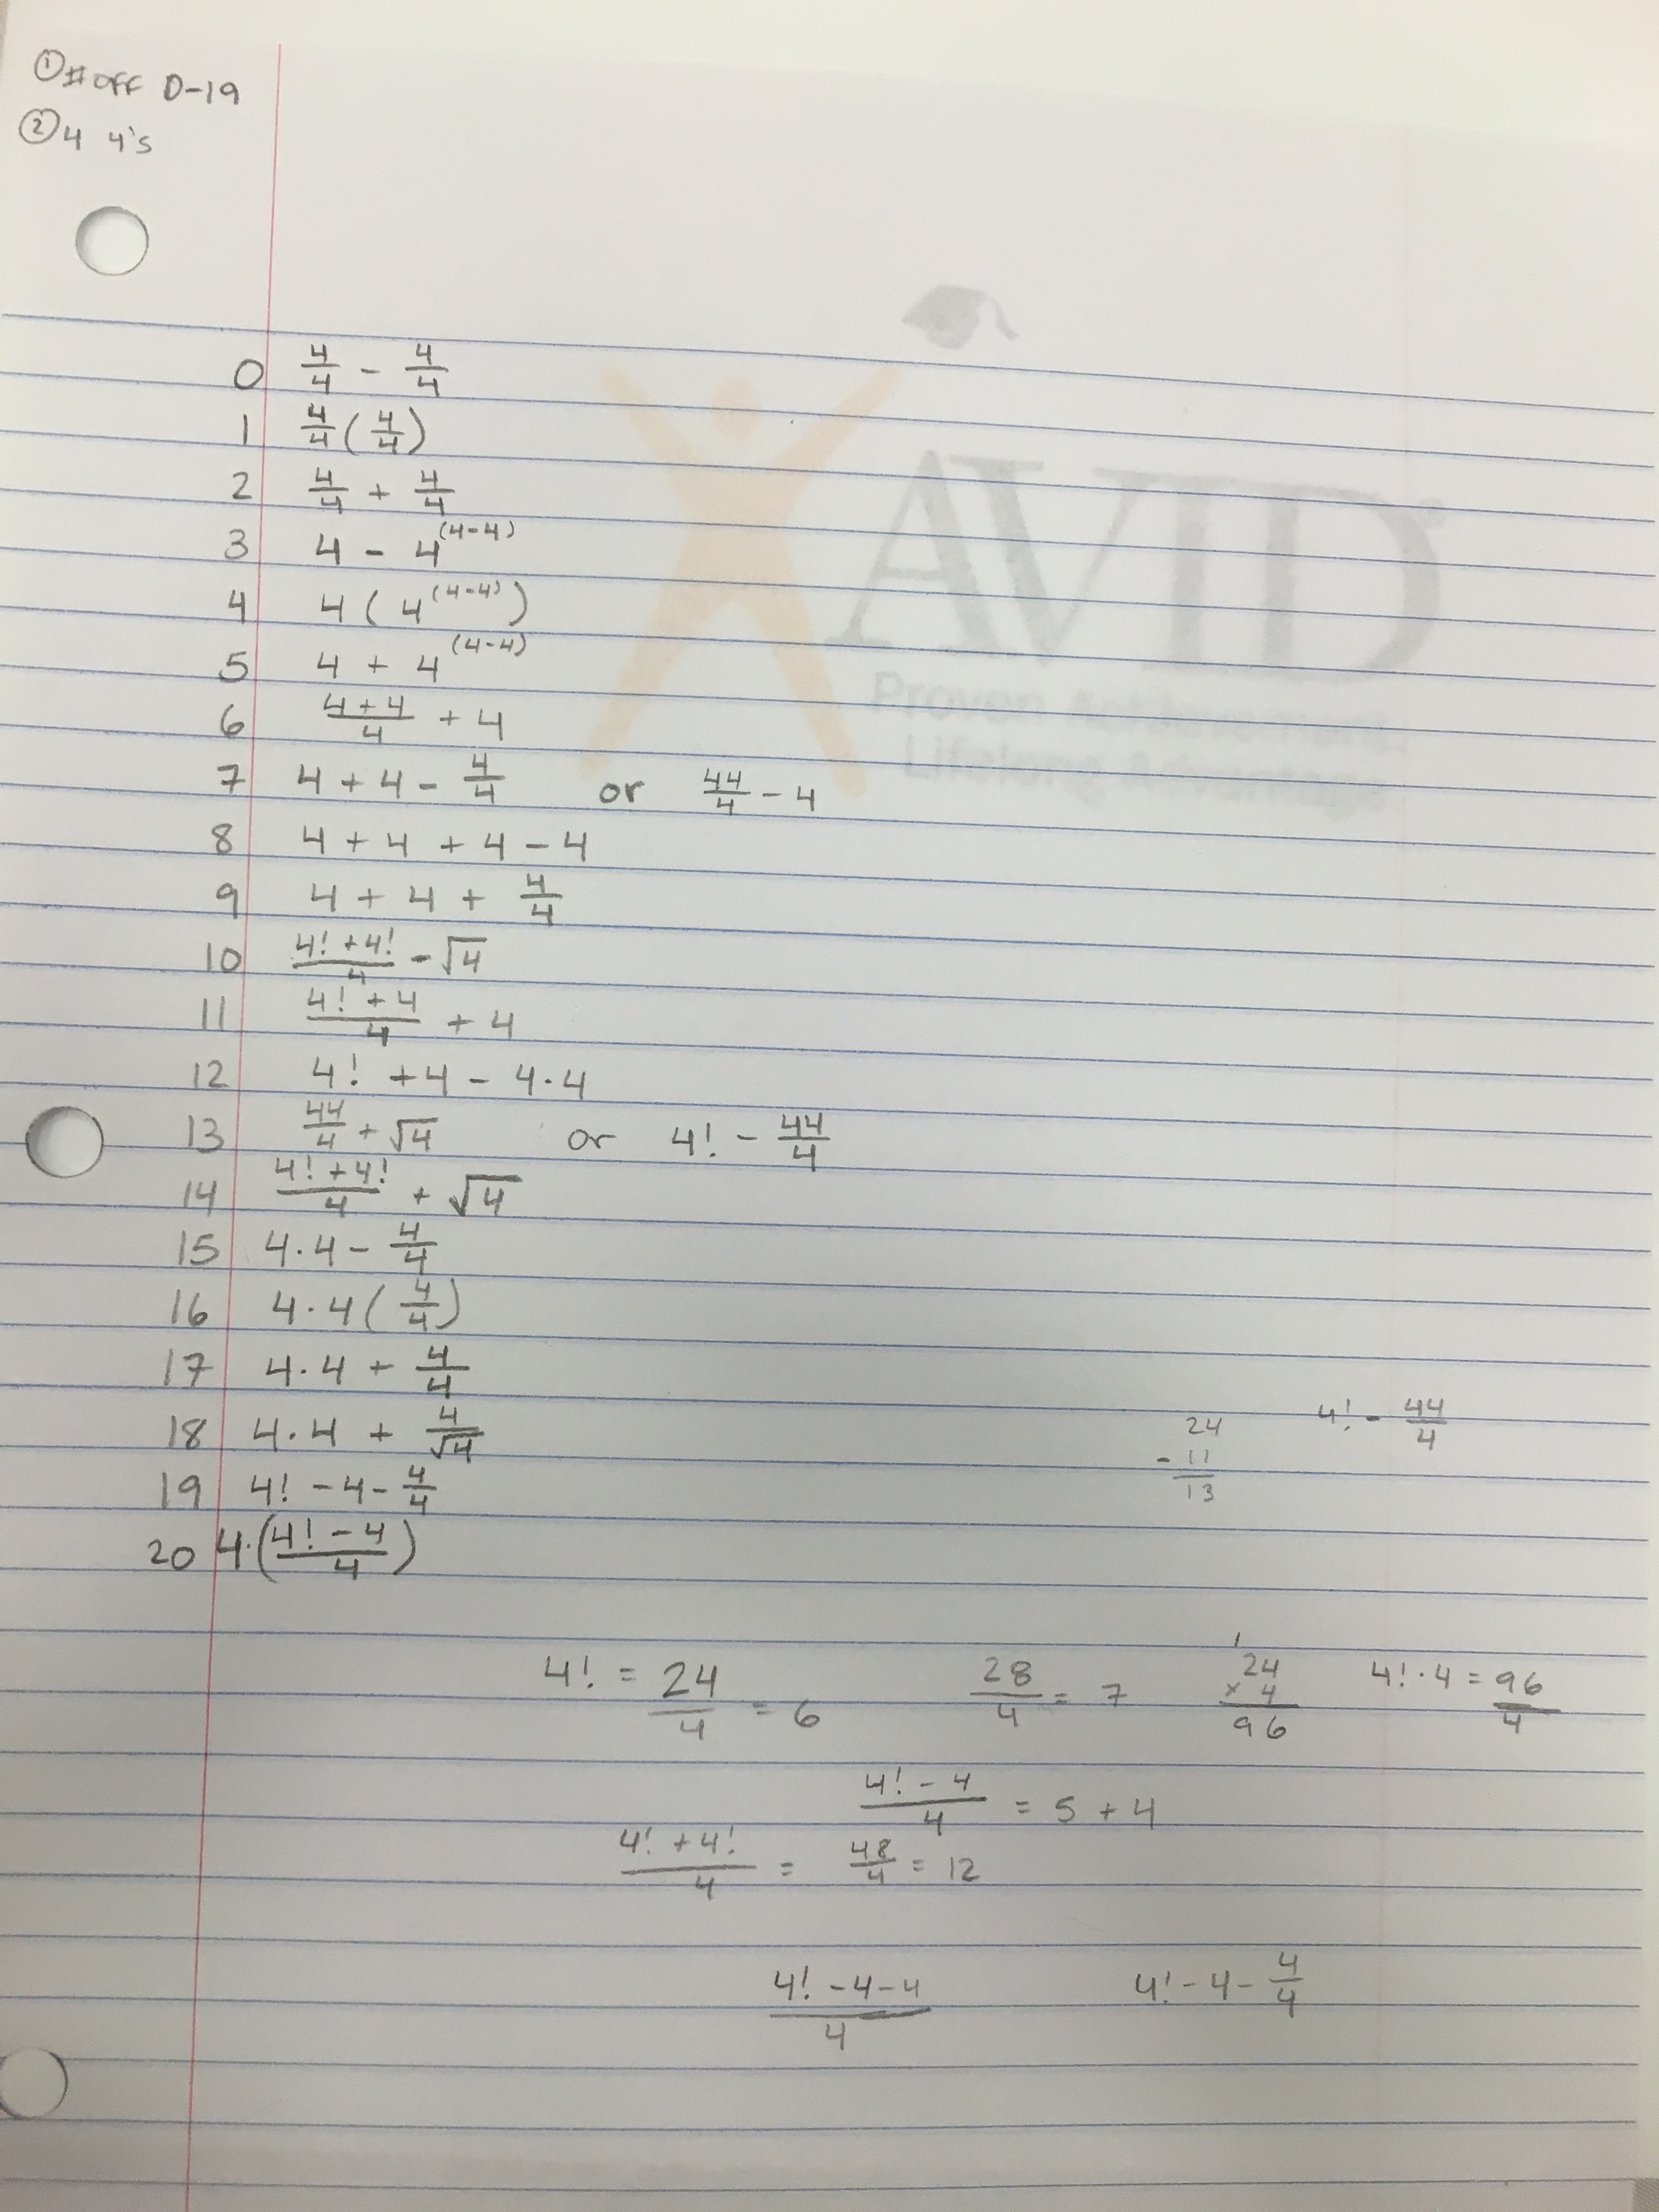 ① # off 0-19
② 4 4's
AVID®
Proven Achievement.
Lifelong Advantage.
0 4/4 - 4/4
1 4/4 (4/4)
2 4/4 + 4/4
3 4 - 4^(4-4)
4 4 ( 4^(4-4) )
5 4 + 4^(4-4)
6 (4+4)/4 + 4
7 4 + 4 - 4/4 or 44/4 - 4
8 4 + 4 + 4 - 4
9 4 + 4 + 4/4
10 (4! + 4!)/4 - √4
11 (4! + 4)/4 + 4
12 4! + 4 - 4·4
13 44/4 + √4 or 4! - 44/4
14 (4! + 4!)/4 + √4
15 4·4 - 4/4
16 4·4 (4/4)
17 4·4 + 4/4
18 4·4 + 4/√4
19 4! - 4 - 4/4
20 4·((4! - 4)/4)
24 - 11 = 13
4! - 44/4
4! = 24/4 = 6
28/4 = 7
1
24 × 4 = 96
4!·4 = 96/4
(4! - 4)/4 = 5 + 4
(4! + 4!)/4 = 48/4 = 12
(4! - 4 - 4)/4
4! - 4 - 4/4